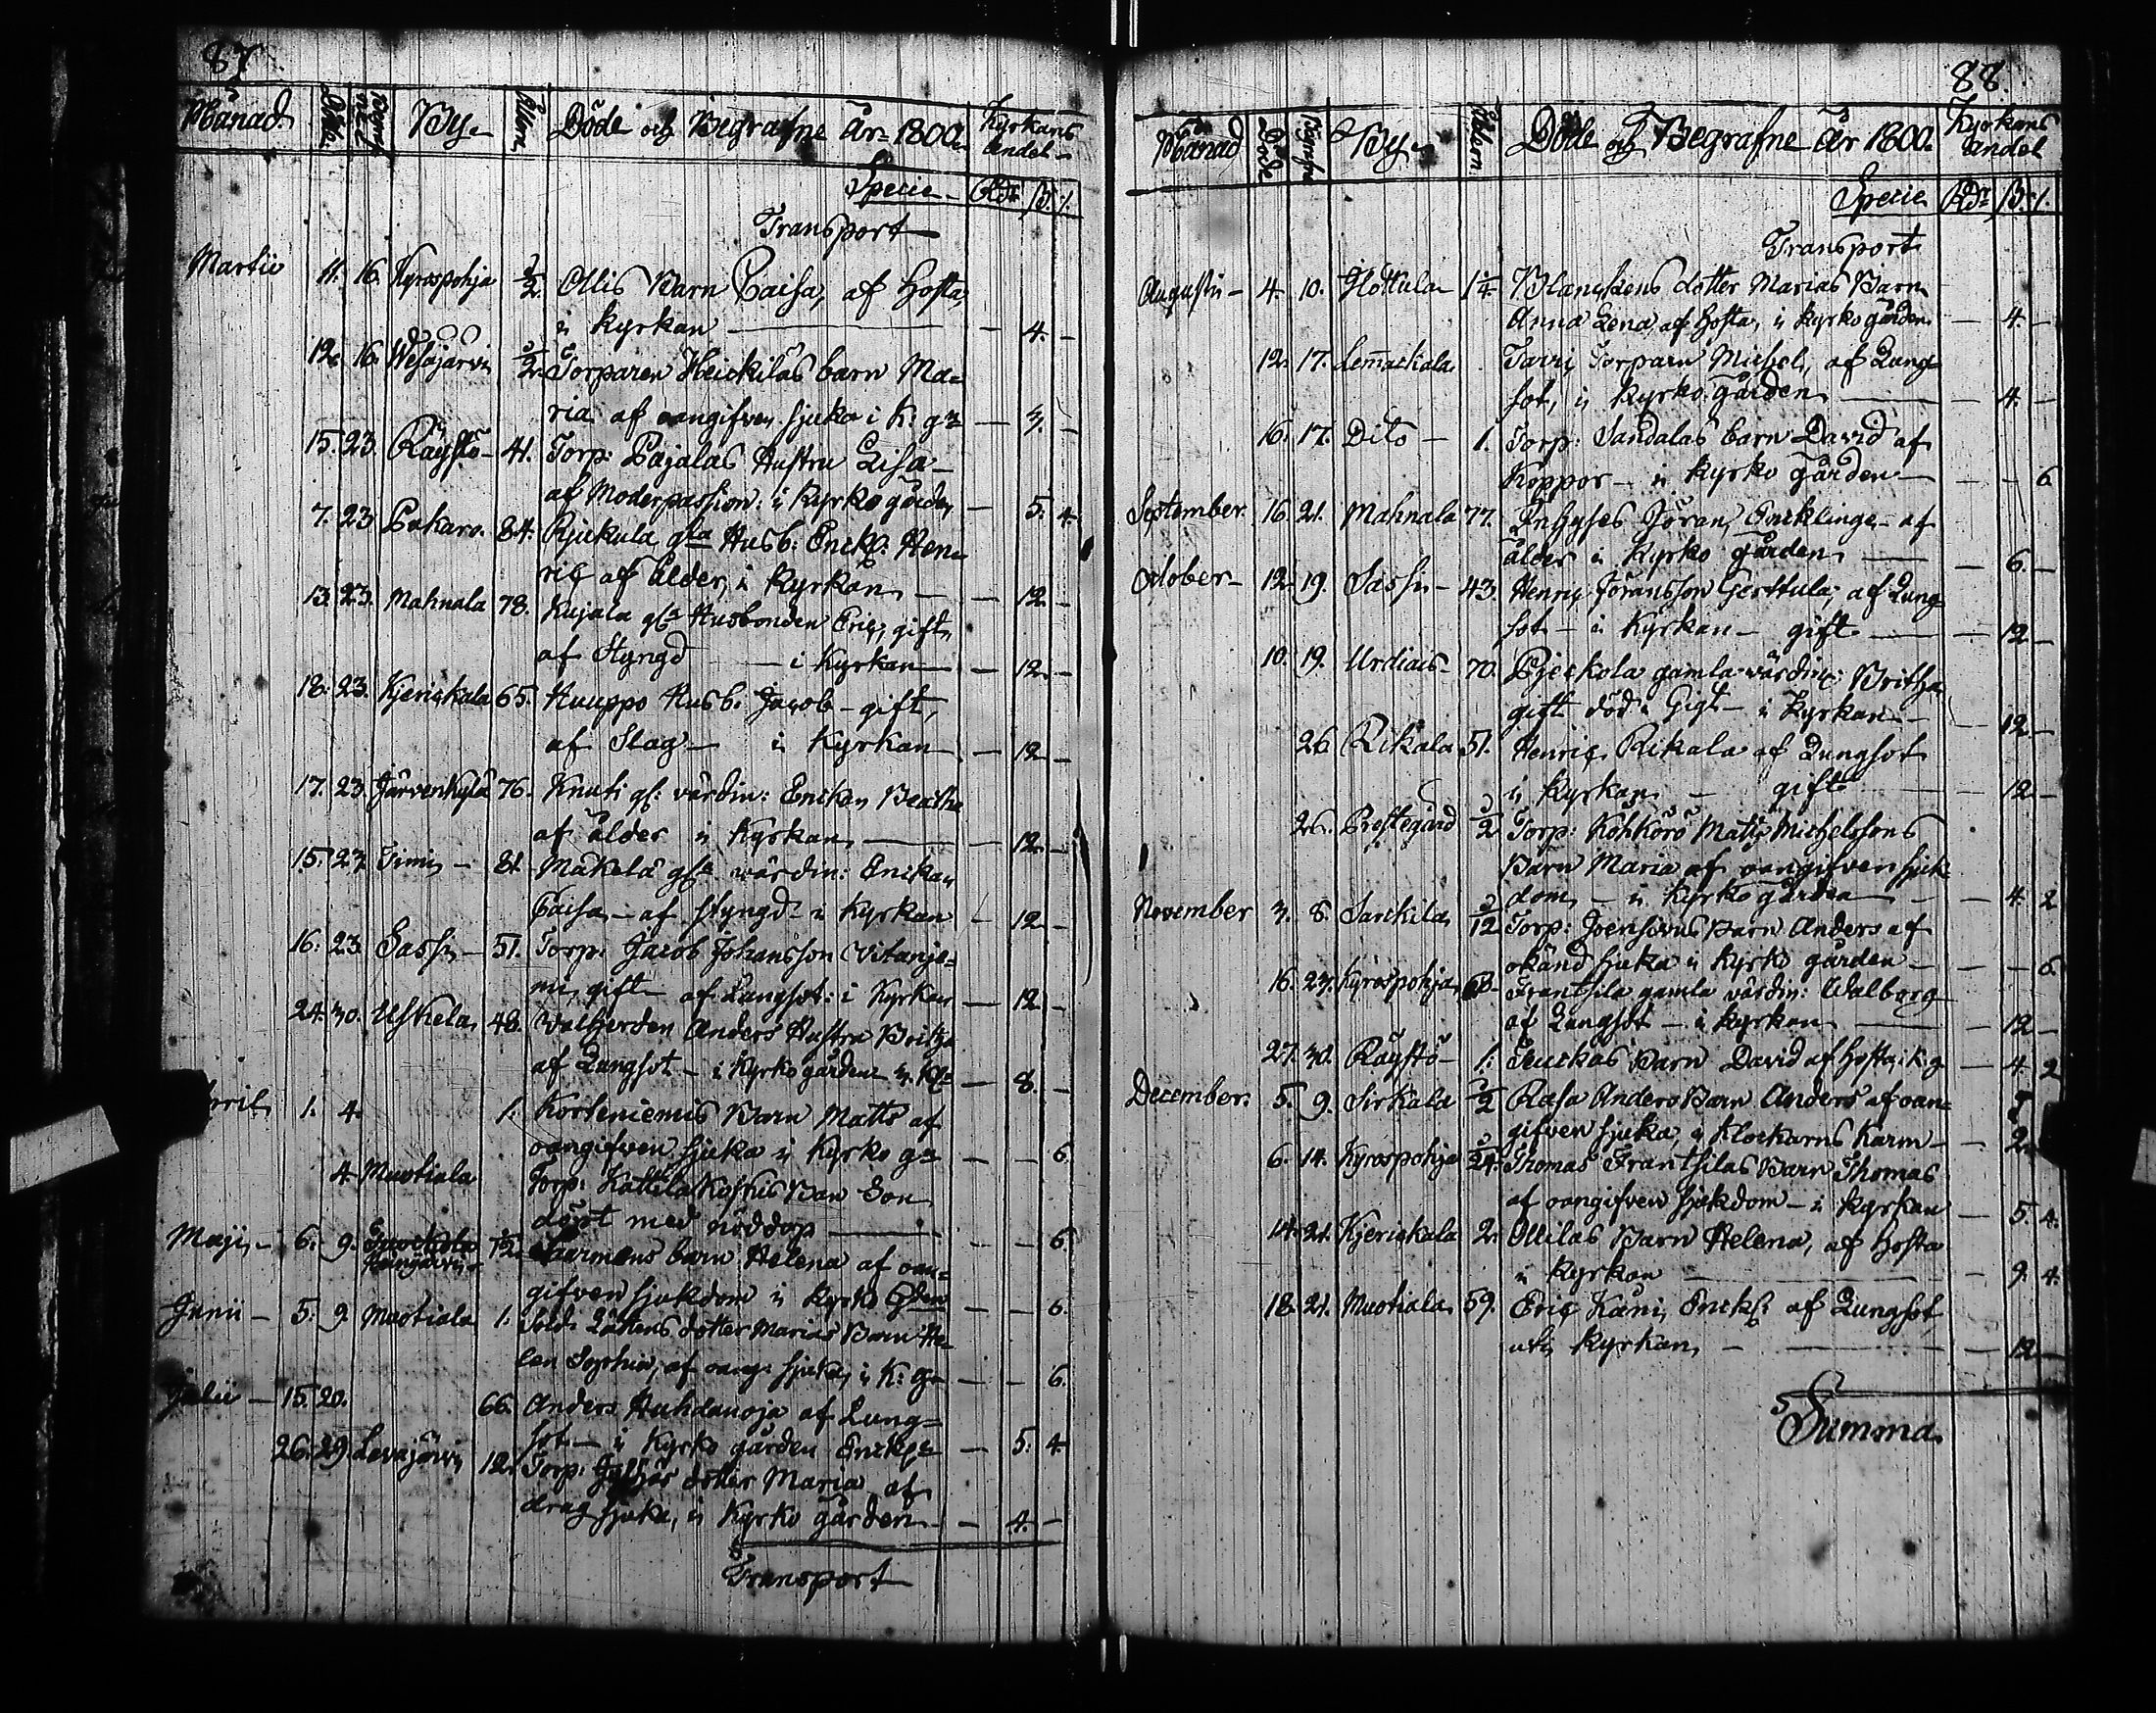 87
Månad. Döde. Begrafne By. Åldern. Döde och Begrafne År 1800. Kyrkans andel
Specie Rdr ß. /.
Transport
Martii 11. 16. Kyrospohja ½ Ollis Barn Caisa, af Hosta,
i kyrkan — 4. —
12. 16. Wesajärvi ½ Torparen Heickiläs barn Ma=
ria af oangifven sjuka i K: g: — 3. —
15. 23. Räystö 41. Torp: Pajalas Hustru Lisa
af Moderpassion: i kyrko gården — 5. 4.
7. 23. Pakaro. 84. Rjukula gla Husb: Enckl: Hen=
ric af ålder, i kyrkan — 12 —
13. 23. Mahnala 78. Kujala gla Husbonden Eric, gift,
af Styngd — i Kyrkan — 12. —
18. 23. Kjerickala 65. Huuppo Husb. Jacob — gift,
af Slag — i Kyrkan — 12 —
17. 23. Järvenkylä 76. Knuti gl: värdin: Enckan Beatha
af ålder i Kyrkan — 12. —
15. 23. Timi 81. Mäkelä gla wärdin: Enckan
Caisa, — af styngd — i Kyrkan — 12 —
16. 23. Sassi 51. Torp: Jacob Johansson Vitanje=
mi, gift — af Lungsot: i Kyrkan — 12 —
24. 30. Uskela 48. Vallherden Anders Hustru Britha
af Lungsot — i Kyrko gården — 8. —
April 1. 4. 1. Korteniemis Barn Matts af
oangifven sjuka i Kyrko g: — — 6.
4. Muotiala Torp: Kattila Barn Son
döpt med nöddop — — 6.
Maji 6. 9. Harmens barn Helena af oan=
gifven sjukdom i kyrko Gden — — 6.
Junii — 5. 9. Muotiala 1. Sold: Lättens dotter Marias Barn He=
len Sophia, af oang: sjuka, i K: g: — — 6.
Julii — 15. 20. 66. Anders Huhdanoja af Lung=
sot — i Kyrko gården — 5. 4
26. 29. Levajärvi 12. Torp: dotter Maria af
drag sjuka, i Kyrko gården — 4. —
Transport
88.
Månad Döde Begrafne By. Åldern. Döde och Begrafne År 1800. Kyrkans andel
Specie Rdr ß. /.
Transport
Augusti — 4. 10. Höttula 1¼ dotter Marias Barn
Anna Lena af Hosta, i kyrko gården — 4. —
12. 17. Lemackala Tarri, Torparn Michel, af Lung=
sot, i Kyrko gården — 4. —
16. 17. Dito — 1. Torp: Sandalas barn David af
Koppor — i kyrko gården — — 6
September. 16. 21. Mahnala 77. Inhyses Jöran, Encklinge — af
ålder i Kyrko gården — 6. —
October — 12. 19. Sassi — 43. Henric Jöransson Gerttula, af Lung=
sot — i Kyrkan — gift — 12 —
10. 19. Urdiais 70. Pjeckola gamla värdin: Britha
gift död i Gigt — i Kyrkan — 12 —
26 Rikala 51. Henric Rikala af Lungsot
i Kyrkan — gift — 12. —
26. Prestegård ½ Torp: Kohkörö Matts Michelssons
Barn Maria af oangifven sjuk=
dom, — i Kyrko gården — 4. 2
November 3. 8. Sarckila Torp: Joensuus Barn Anders af
okänd sjuka i Kyrko gården — — 6.
16. 23. Kyrospohja Frantsila gamla värdin: Walborg
af Lungsot — i kyrkan — 12 —
27. 30. Räystö 1. Teuckas Barn David af Hosta, i K: g — 4. 2
December. 5. 9. Sirkala ½ Rasa Anders Barn Anders af oan=
gifven sjuka, i Klockarns Karm — 2.
6. 14. Kyrospohja Thomas Frantsilas Barn Thomas
af oangifven sjukdom — i Kyrkan — 5. 4.
14. 21. Kjerickala 2. Ollilas Barn Helena, af Hosta
i Kyrkan — 9. 4.
18. 21. Muotiala 59. Eric Käni, Enckl: af Lungsot
uti kyrkan, — 12 —
Summa.